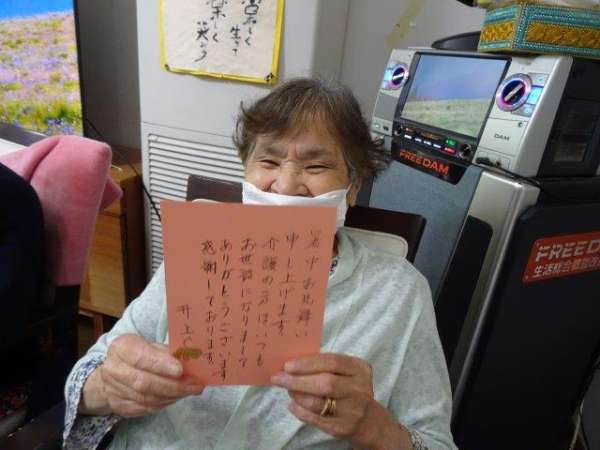 楽しく
生き
楽しく
笑う
DAM
FREEDAM
DAM
FREEDAM
生活総合機能改善
暑中お見舞い
申し上げます。
介護の方はいつも
お世話になりまして
ありがとうございます
感謝しております。
井上